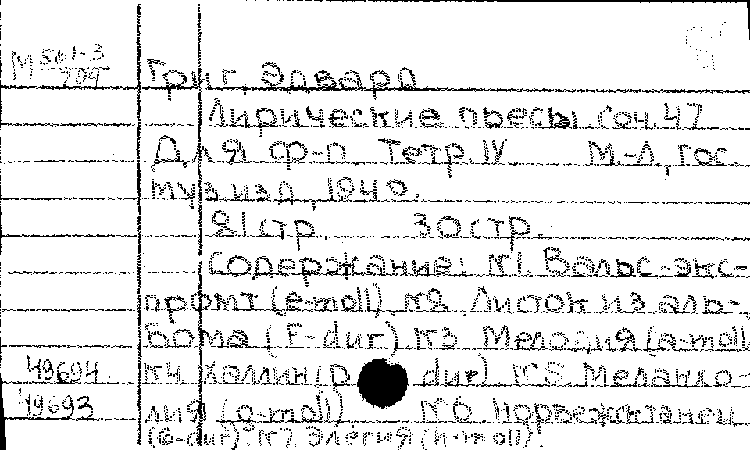 М 561-3/709
Григ, Эдвард
Лирические пьесы. Соч. 47
Для ф-п. Тетр. IV. М.-Л., Гос.
муз. изд., 1940.
21 стр. 30 стр.
Содержание: №1. Вальс-экс-
промт (e-moll). №2 Листок из аль-
бома (F-dur) №3 Мелодия (a-moll
49694 №4 Халлинг (D dur) №5 Меланхо-
49693 лия (g-moll) №6. Норвежский танец
(G-dur). №7. Элегия (h-moll).